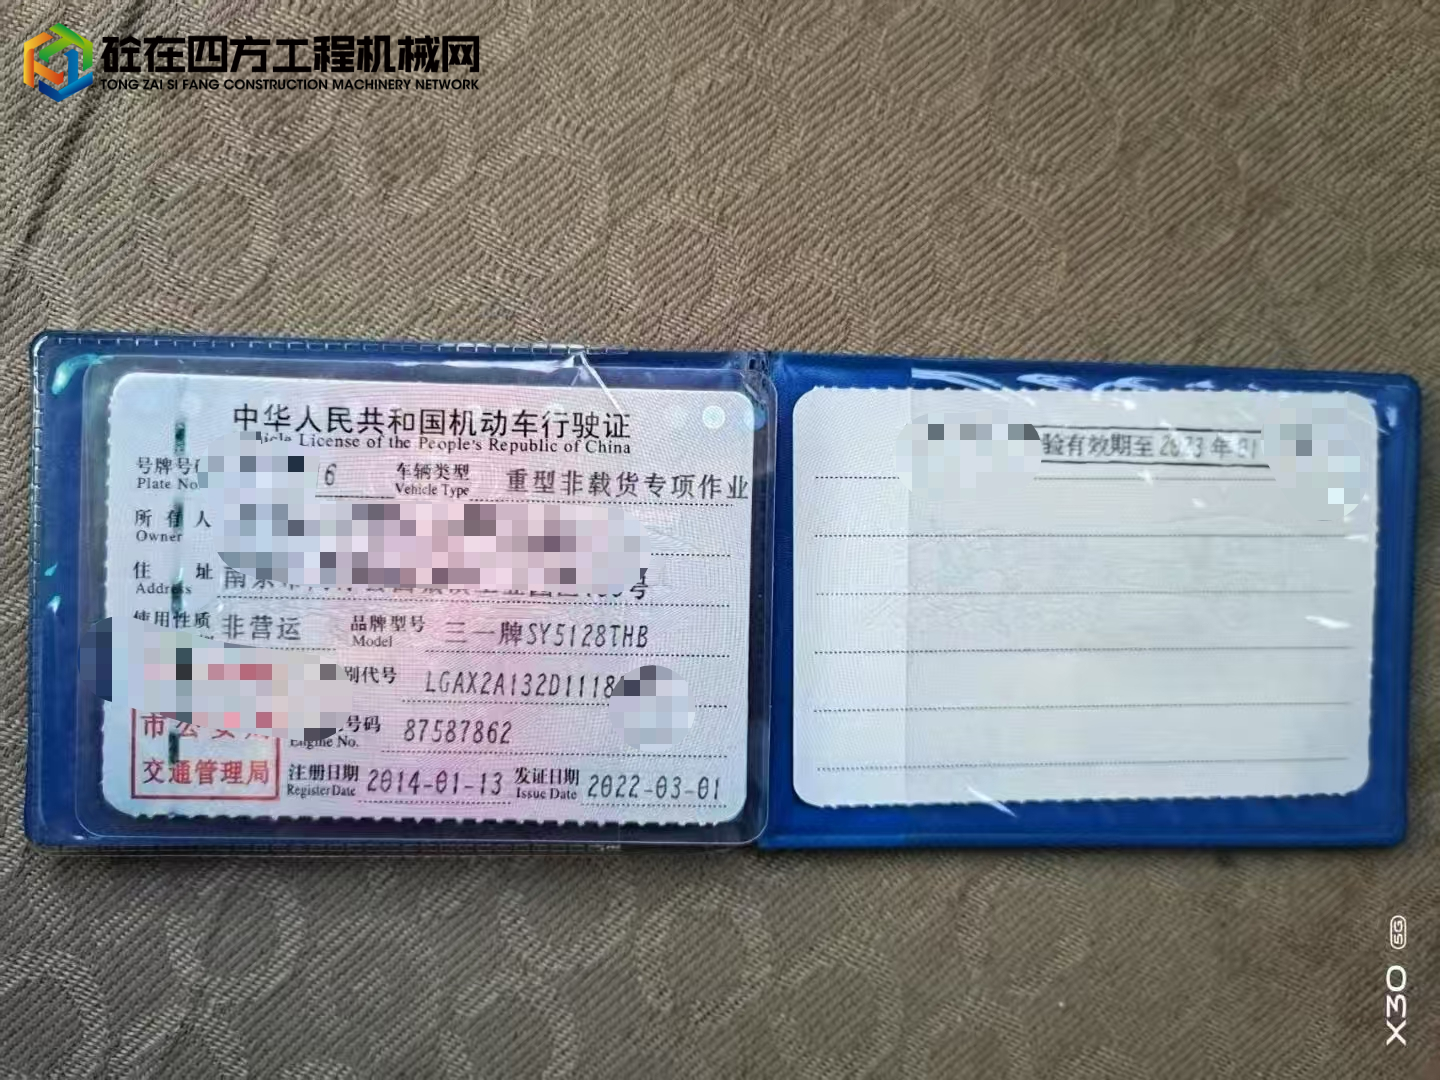 砼在四方工程机械网
TONG ZAI SI FANG CONSTRUCTION MACHINERY NETWORK
中华人民共和国机动车行驶证
License of the People's Republic of China
号牌号 6 车辆类型 重型非载货专项作业
Plate No Vehicle Type
所有人
Owner
住 址 南京市 号
Address
使用性质 非营运 品牌型号 三一牌SY5128THB
Model
别代号 LGAX2A132D1118
号码 87587862
Engine No.
市公安局
交通管理局
注册日期 2014-01-13 发证日期 2022-03-01
Register Date Issue Date
验有效期至2023年01
X30 5G